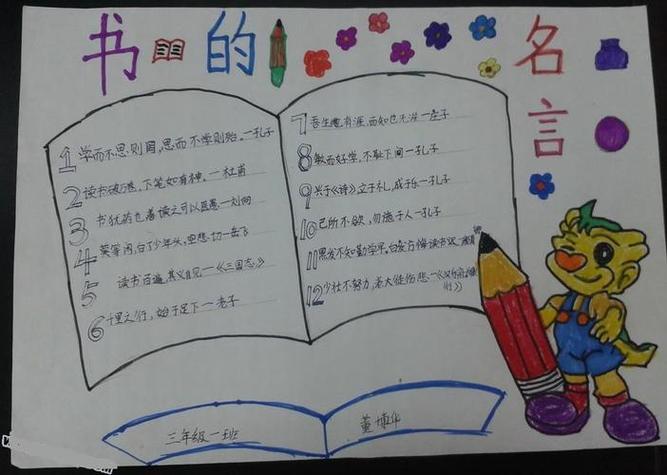 书的名言
1 学而不思则罔,思而不学则殆。—孔子
2 读书破万卷,下笔如有神。—杜甫
3 书犹药也,善读之可以医愚—刘向
4 莫等闲,白了少年头,空悲切—岳飞
5 读书百遍,其义自见—《三国志》
6 千里之行,始于足下—老子
7 吾生也有涯,而知也无涯—庄子
8 敏而好学,不耻下问—孔子
9 兴于《诗》立于礼,成于乐—孔子
10 己所不欲,勿施于人—孔子
11 黑发不知勤学早,白首方悔读书迟
12 少壮不努力,老大徒伤悲—《汉乐府
行》
三年级一班
董博华